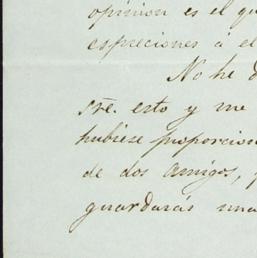 opinion es el qu
espreciones á el
No he d
sre. esto y me
hubiese proporcion
de dos amigos, y
guardarás una